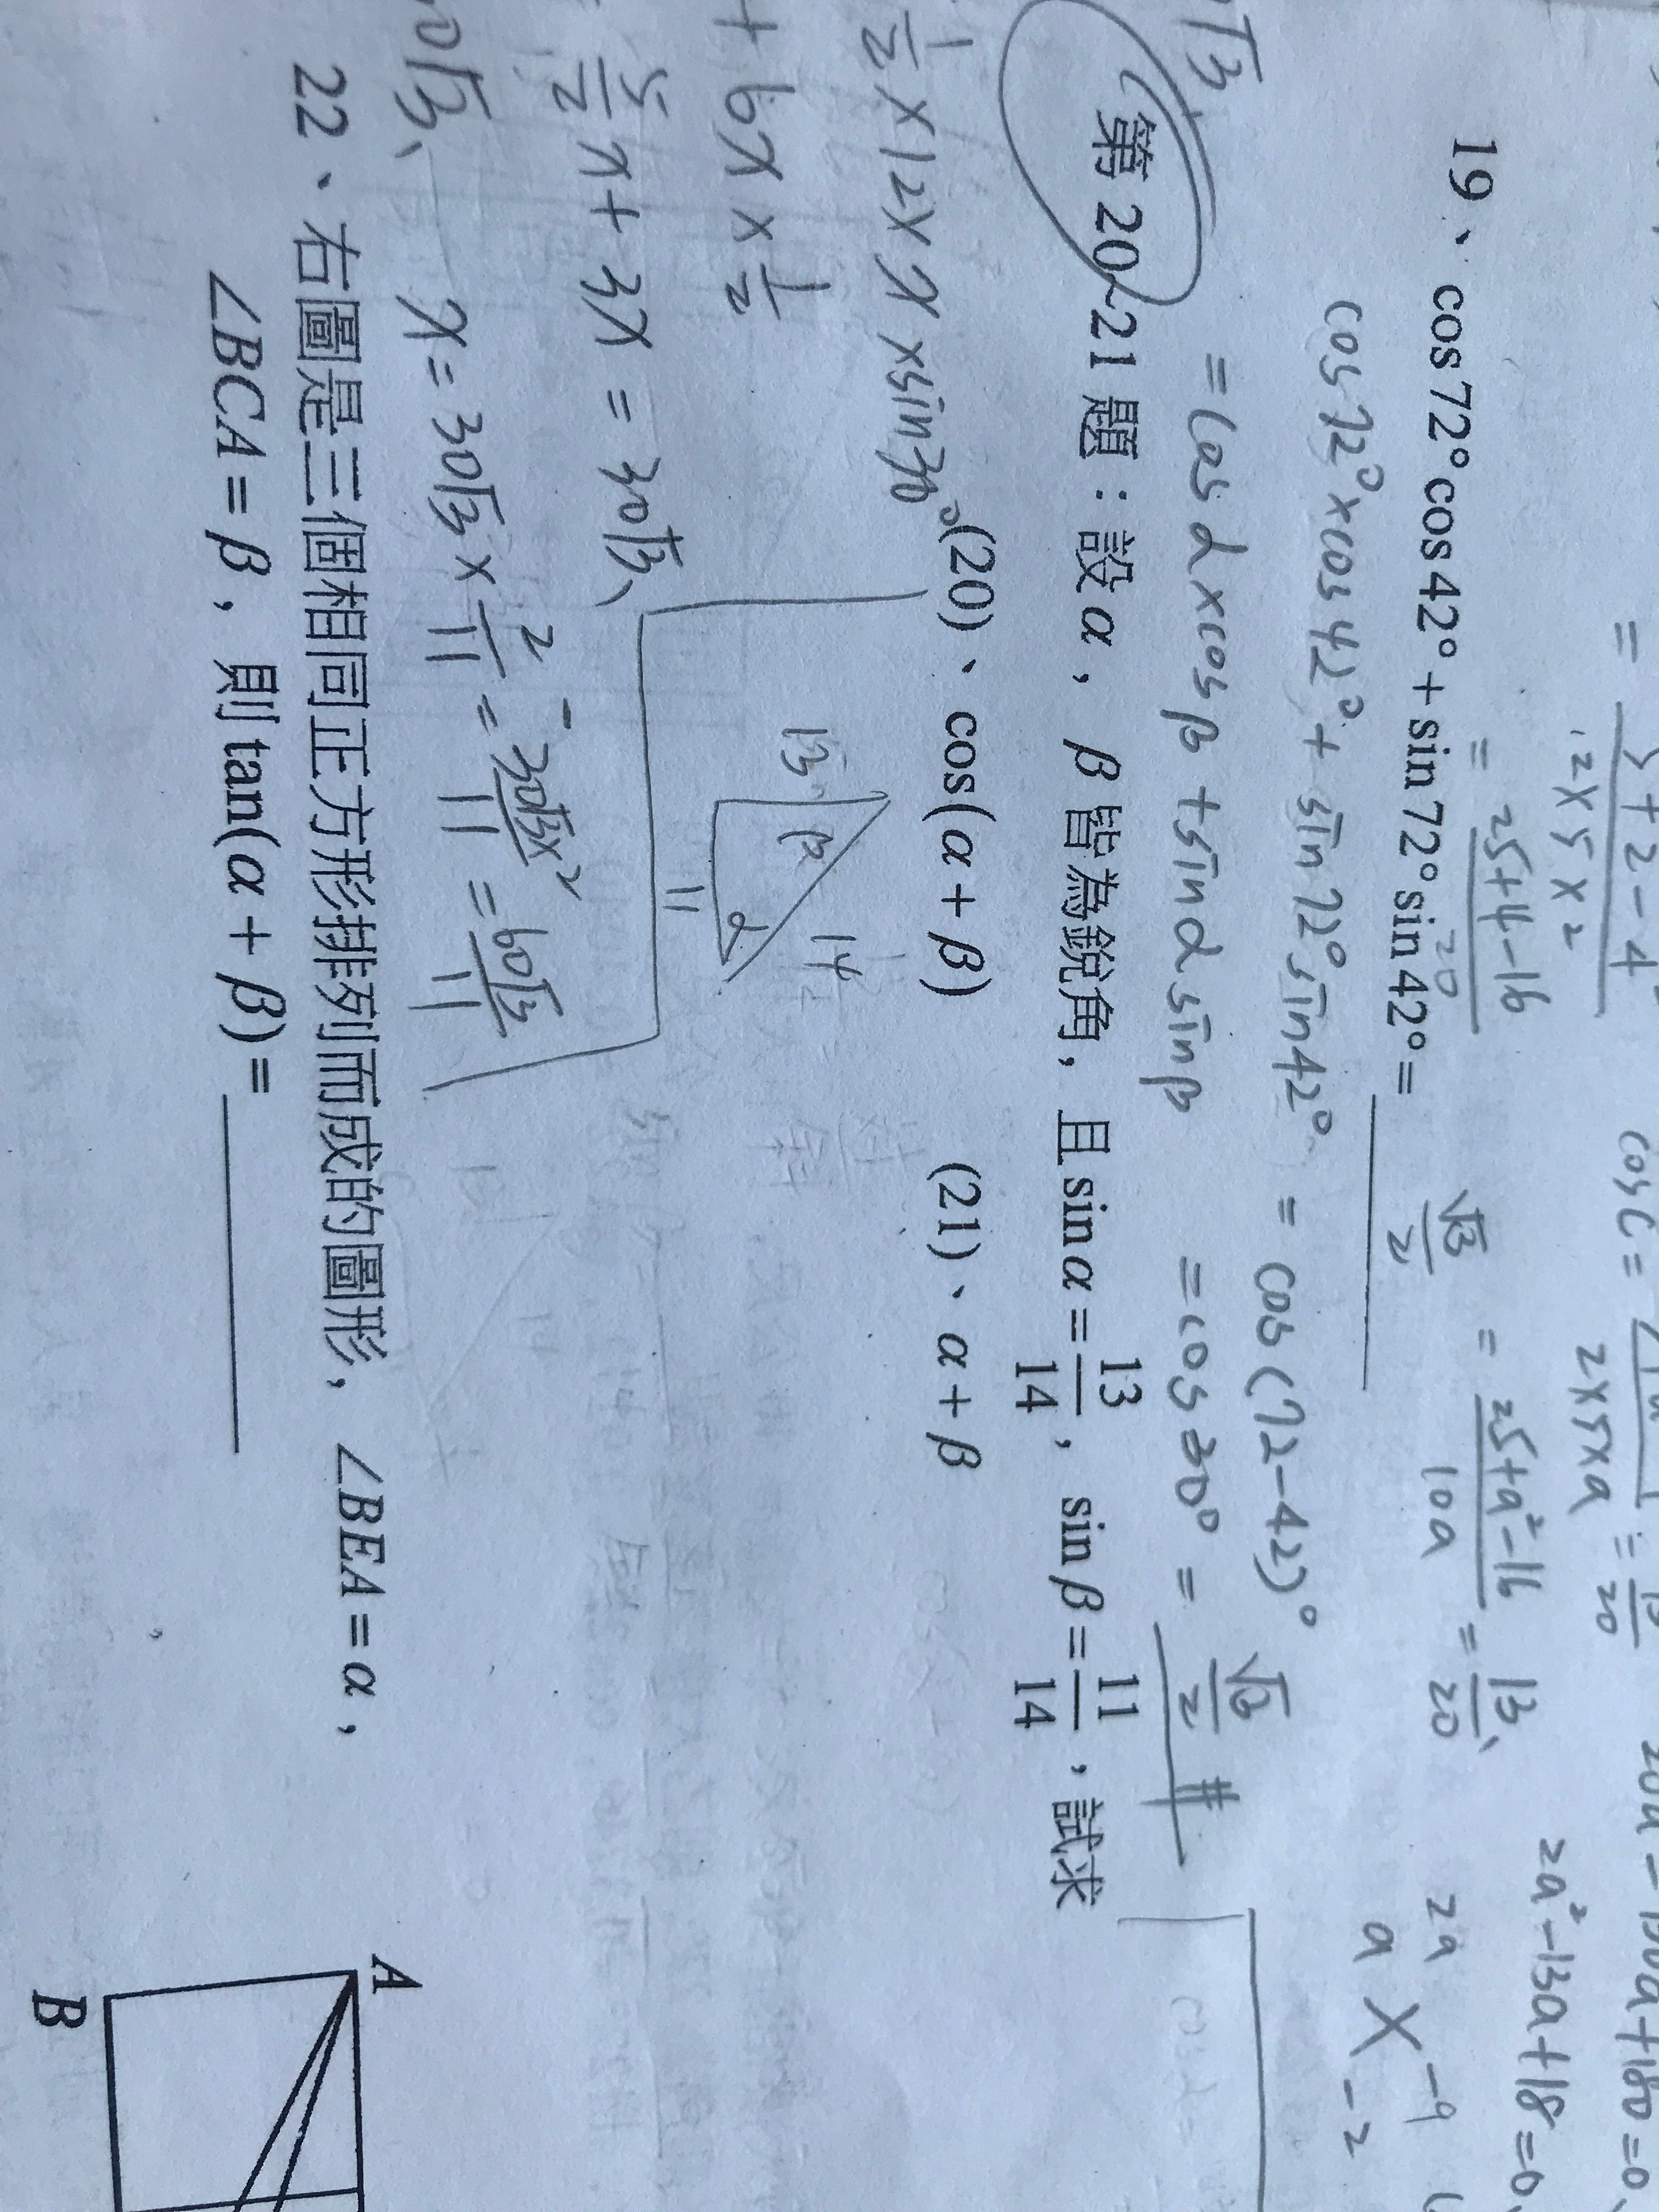 = 5+2-4
2×5×2
= 25+4-16
20
cos C =
2×5×a
= 13
20
= 25+a²-16
10a
= 13
20
2a²-13a+18=0
2a -9
a -2
19、cos72°cos42°+sin72°sin42°=
√3
2
cos72°×cos42°+sin72°sin42° = cos(72-42)°
= cos α×cos β+sin α sin β = cos 30° = √3
2 #
第20~21題：設α，β皆為銳角，且sin α= 13
14 ，sin β= 11
14 ，試求
(20)、cos(α+β) (21)、α+β
1
2 ×12×x×sin30°
13 β 14
α
11
+6x×1
2
5
2 x+3x=30√3、
x=30√3×2
11 = 30√3×2
11 = 60√3
11
22、右圖是三個相同正方形排列而成的圖形，∠BEA=α，
∠BCA=β，則tan(α+β)=
A
B